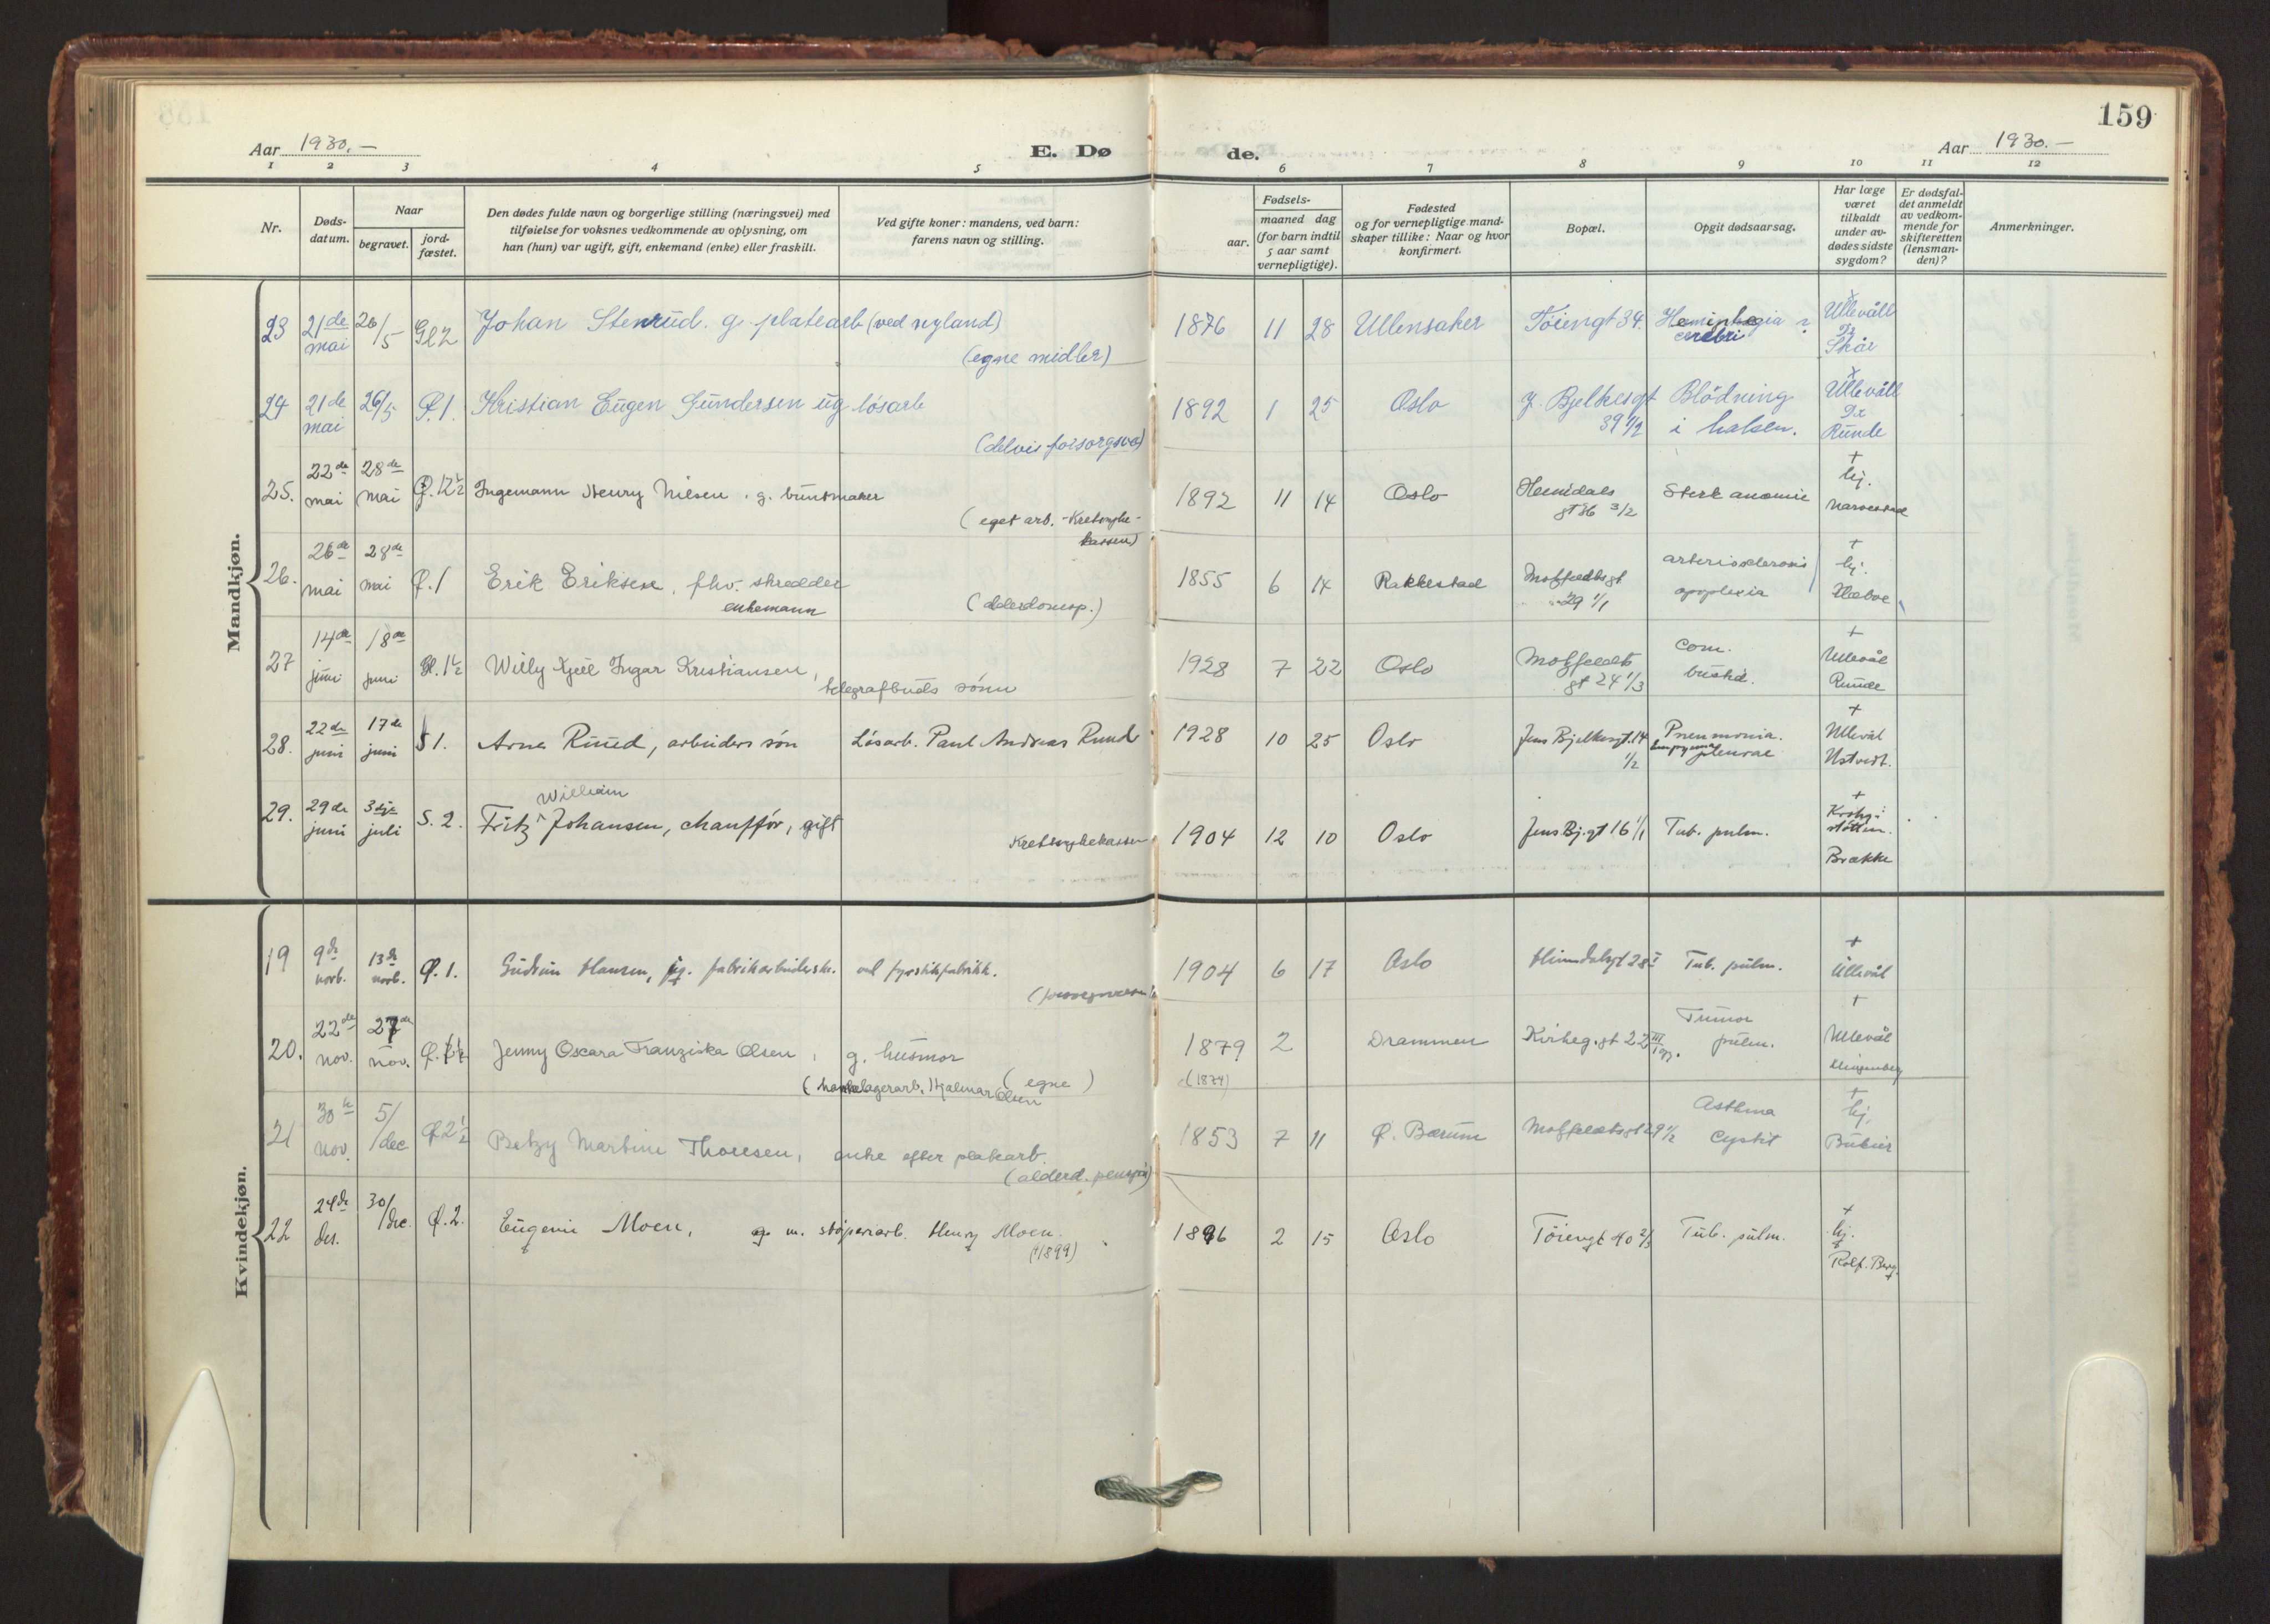 159
Aar 1930.-
E. Dø
de.
Aar 1930.-
1 2 3 4 5 6 7 8 9 10 11 12
Nr.
Døds-
datum.
Naar
begravet.
jord-
fæstet.
Den dødes fulde navn og borgerlige stilling (næringsvei) med
tilføielse for voksnes vedkommende av oplysning, om
han (hun) var ugift, gift, enkemand (enke) eller fraskilt.
Ved gifte koner: mandens, ved barn:
farens navn og stilling.
Fødsels-
aar.
maaned dag
(for barn indtil
5 aar samt
vernepligtige).
Fødested
og for vernepligtige mand-
skaper tillike: Naar og hvor
konfirmert.
Bopæl.
Opgit dødsaarsag.
Har læge
været
tilkaldt
under av-
dødes sidste
sygdom?
Er dødsfal-
det anmeldt
av vedkom-
mende for
skifteretten
(lensman-
den)?
Anmerkninger.
Mandkjøn.
23 21de mai 26/5 Johan Stenrud. g. platearb (ved nyland)
(egne midler)
1876 11 28 Ullensaker Töiengt 34. Hemiplegia ?
cerebri
Ullevåll
Dr
Skår
24 21de mai 26/5 Ø.1. Kristian Eugen Gundersen ug. lösarb
(delvis forsorgsv.)
1892 1 25 Oslo J. Bjelkesgt
39 1/2
Blödning
i halsen.
Ullevåll
Dr
Runde
25. 22de mai 28de mai Ø.12½ Ingemann Henry Nilsen, g. buntmaker
(eget arb. - Kretssyke-
kassen)
1892 11 14 Oslo Heimdals
gt 36 3/2
Sterk anæmie
+
hj.
Narvestad
26. 26de mai 28de mai Ø.1 Erik Eriksen, fhv. skredder
enkemann
1855 6 14 Rakkestad Motzfeldts gt
29 1/1
arteriosclerosis
apoplexia
+
hj.
27 14de juni 18de juni Willy Kjell Ingar Kristiansen,
telegrafbuds sönn
1928 7 22 Oslo Motzfeldts
gt 24 1/3
Com.
bustio.
+
Ullevål
Runde
28. 22de juni 17de juni S1. Arne Ruud, arbeiders søn Løsarb. Paul Andreas Ruud
1928 10 25 Oslo Jens Bjelkesgt. 14
1/2
Pneumonia.
Empyema pleurae
+
Ullevål
Ustvedt.
29. 29de juni 3dje juli S.2. Fritz William Johansen, chauffør, gift
Kretssykekassen
1904 12 10 Oslo Jens Bj.gt 16 1/1 Tub. pulm.
+
Krohg-
støtten.
Brække
Kvindekjøn.
19 9de novb. 13de novb. Ø.1. Gudrun Hansen, ug. fabrikarbeiderske. ved fyrstikfabrikk.
1904 6 17 Oslo Heimdalsgt 28 I Tub. pulm.
+
Ullevål
20. 22de nov. 27de nov. Jenny Oscara Franziska Olsen, g. husmor
lagerarb. Hjalmar Olsen (egne)
1879 2 Drammen Kirkeg.gt 22 III opg.
(1874)
Tumor
pulm.
+
Ullevål
21 30te nov. 5/dec Ø2½ Betzy Martine Thoresen, enke efter platearb.
(alderd. pensjon)
1853 7 11 Ø. Bærum Motzfeldtsgt 29 1/2
Asthma
Cystit
+
hj.
22 24de des. 30/dec. Ø.2. Eugenie Moen, g. m. støperiarb. Henry Moen.
(1899)
1896 2 15 Oslo Töiengt 40 2/3 Tub. pulm.
+
hj.
Rolf. Berg.